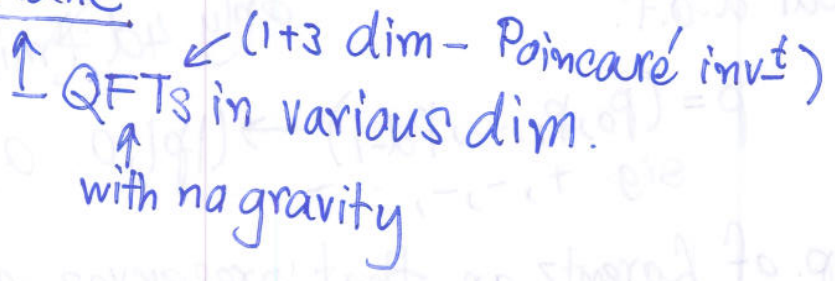 (1+3 dim - Poincaré invt)
QFTs in various dim.
with no gravity